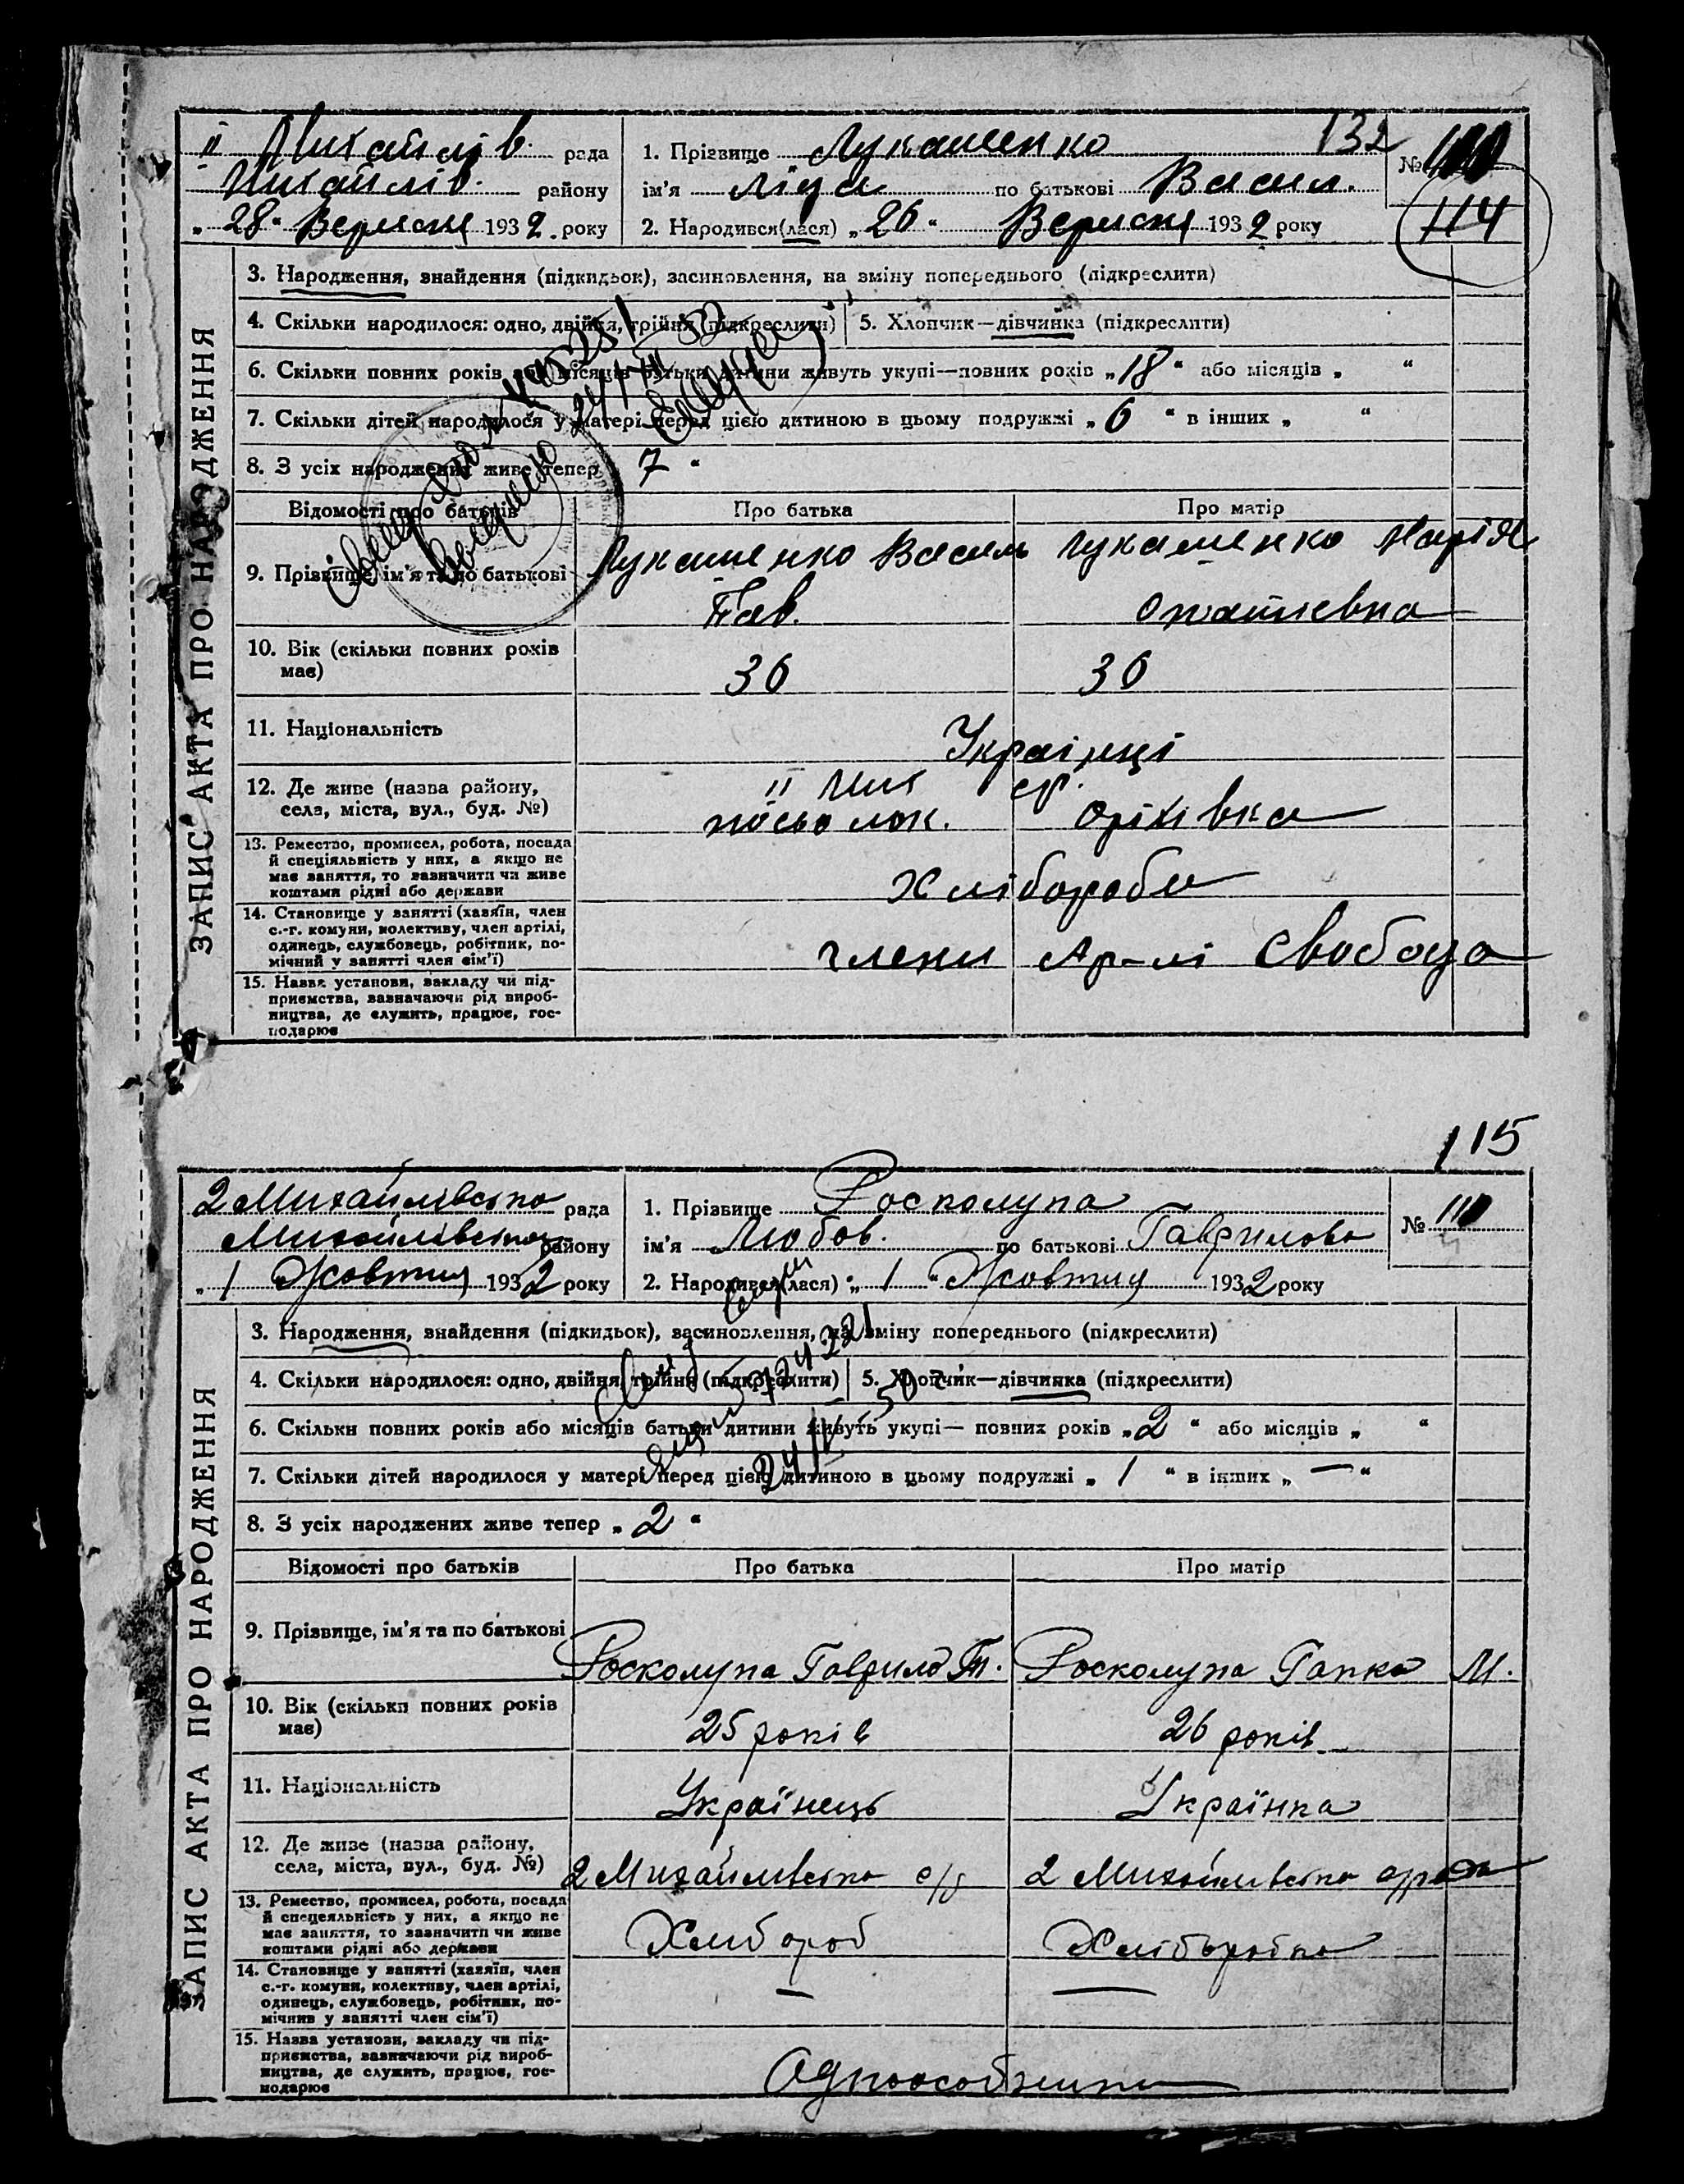 II Михайлів. рада
Михайлів. району
„28“ Вересня 1932. року
1. Прізвище Лукашенко 132
ім'я Ліда по батькові Васил.
2. Народився(лася) „26“ Вересня 1932 року
№
114
ЗАПИС АКТА ПРО НАРОДЖЕННЯ
3. Народження, знайдення (підкидьок), засиновлення, на зміну попереднього (підкреслити)
4. Скільки народилося: одно, двійня, трійня (підкреслити) 5. Хлопчик—дівчинка (підкреслити)
6. Скільки повних років або місяців батьки дитини живуть укупі—повних років „18“ або місяців „ “
7. Скільки дітей народилося у матері перед цією дитиною в цьому подружжі „6“ в інших „ “
8. З усіх народжених живе тепер „7“
Відомості про батьків Про батька Про матір
9. Прізвище, ім'я та по батькові
Лукашенко Василь Лукашенко Марія
Пав.
10. Вік (скільки повних років
має)
36 36
11. Національність
Українці
12. Де живе (назва району,
села, міста, вул., буд. №)
II Мих ср.
посьолок. Оріхівка
13. Ремество, промисел, робота, посада
й спеціяльність у них, а якщо не
має заняття, то зазначити чи живе
коштами рідні або держави
Хлібороби
14. Становище у занятті (хазяїн, член
с.-г. комуни, колективу, член артілі,
одинець, службовець, робітник, по-
мічний у занятті член сім'ї)
члени Ар-лі Свобода
15. Назва установи, закладу чи під-
приємства, зазначаючи рід вироб-
ництва, де служить, працює, гос-
подарює
115
2 Михайлівська рада
Михайлівськ району
„1 Жовтня 1932 року
1. Прізвище Росколупа
ім'я Любов. по батькові Гаврилова
2. Народився(лася) „1“ Жовтня 1932 року
№
ЗАПИС АКТА ПРО НАРОДЖЕННЯ
3. Народження, знайдення (підкидьок), засиновлення, на зміну попереднього (підкреслити)
4. Скільки народилося: одно, двійня, трійня (підкреслити) 5. Хлопчик—дівчинка (підкреслити)
6. Скільки повних років або місяців батьки дитини живуть укупі— повних років „2“ або місяців „ “
7. Скільки дітей народилося у матері перед цією дитиною в цьому подружжі „1“ в інших „—“
8. З усіх народжених живе тепер „2“
Відомості про батьків Про батька Про матір
9. Прізвище, ім'я та по батькові
Росколупа Гаврило Т. Росколупа Гапка М.
10. Вік (скільки повних років
має)
25 років 26 років
11. Національність
Українець Українка
12. Де живе (назва району,
села, міста, вул., буд. №)
2 Михайлівська с/р 2 Михайлівська с/рада
13. Ремество, промисел, робота, посада
й спецеяльність у них, а якщо не
має заняття, то зазначити чи живе
коштами рідні або держави
Хлібороб Хліборобка
14. Становище у занятті (хазяїн, член
с.-г. комуни, колективу, член артілі,
одинець, службовець, робітник, по-
мічнив у занятті член сім'ї)
— —
15. Назва установи, закладу чи під-
приємства, зазначаючи рід вироб-
ництва, де служить, працює, гос-
подарює
Одноособники